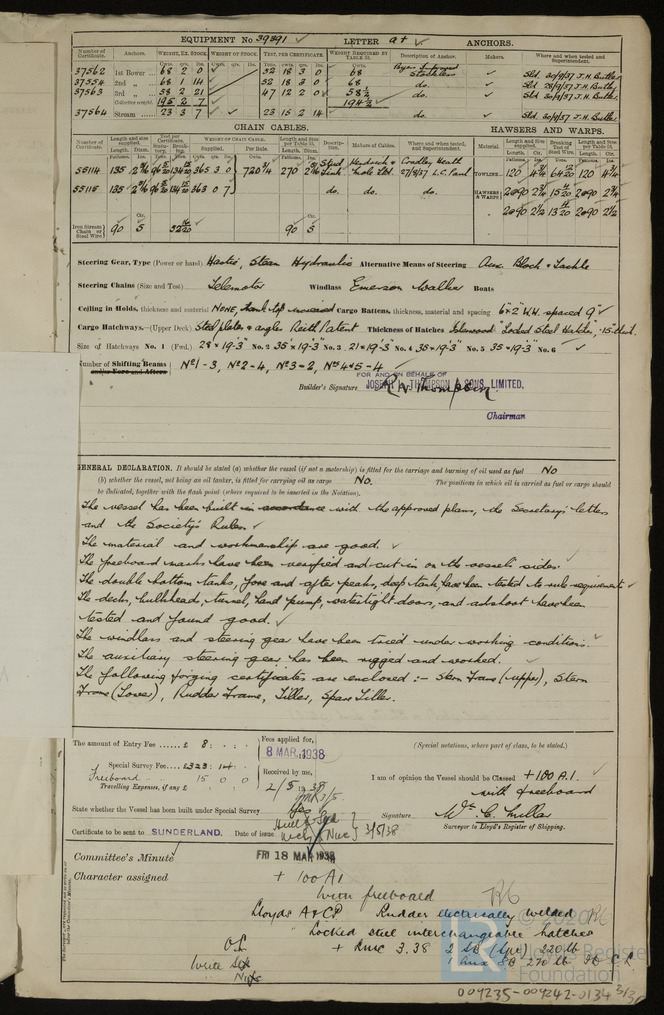 EQUIPMENT No 39391 ✓ LETTER a† ✓ ANCHORS.
Number of Certificate. Anchors. WEIGHT, EX. STOCK. WEIGHT OF STOCK. TEST, PER CERTIFICATE. WEIGHT REQUIRED BY TABLE 53. Description of Anchor. Makers. Where and when tested and Superintendent.
37562 1st Bower 68 2 0 52 18 3 0 68 Stockless Sld. 30/9/37 J.H. Butler
37554 2nd " 68 1 14 52 18 3 0 68 do. Sld. 28/9/37 J.H. Butler
37563 3rd " 58 2 21 47 12 2 0 58½ do. Sld. 30/9/37 J.H. Butler
Collective weight 195 2 7 194½
37564 Stream 23 3 7 23 15 2 14 Sld. 30/9/37 J.H. Butler
CHAIN CABLES. HAWSERS AND WARPS.
Number of Certificate. Length and size supplied. Test per Certificate. WEIGHT OF CHAIN CABLE. Length and Size per Table 53. Description. Makers of Cables. Where and when tested, and Superintendent. Material. Length and Size supplied. Breaking Test of Steel Wire. Length and Size per Table 53.
Supplied. Per Rule.
55114 135 365 3 0 720¾ 270 Stud Link Cradley Heath 27/8/37 L.C. Paul TOWLINE 120 4¾ 120 4¾
55115 135 363 0 7 do. do. do. HAWSERS & WARPS 2@90 2¾ 2@90 2¾
2@90 2½ 2@90 2½
Iron Stream Chain or Steel Wire 90 5 90 5
Steering Gear, Type (Power or hand) Hastie, Steam Hydraulic Alternative Means of Steering Aux. Block & Tackle
Steering Chains (Size and Test) Telemotor Windlass Emerson Walker Boats
Ceiling in Holds, thickness and material NONE, tank top Cargo Battens, thickness, material and spacing 6"×2" W.W. spaced 9" ✓
Cargo Hatchways.—(Upper Deck) Steel plates & angles Reith Patent Thickness of Hatches "Locked Steel Hatches"
Size of Hatchways No. 1 (Fwd.) 28'×19'-3" No. 2 35'×19'-3" No. 3 21'×19'-3" No. 4 35'×19'-3" No. 5 35'×19'-3" No. 6 ✓
Number of Shifting Beams and/or Fore and Afters Nº1-3, Nº2-4, Nº3-2, Nºs 4&5-4
FOR AND ON BEHALF OF
JOSEPH L. THOMPSON & SONS, LIMITED.
Builder's Signature R. N. Thompson
Chairman
GENERAL DECLARATION. It should be stated (a) whether the vessel (if not a motorship) is fitted for the carriage and burning of oil used as fuel No
(b) whether the vessel, not being an oil tanker, is fitted for carrying oil as cargo No. The positions in which oil is carried as fuel or cargo should
be indicated, together with the flash point (where required to be inserted in the Notation).
The vessel has been built in accordance with the approved plans, the Secretary's letters
and the Society's Rules. ✓
The material and workmanship are good. ✓
The freeboard marks have been verified and cut in on the vessel's sides.
The double bottom tanks, fore and after peaks, deep tank, have been tested to rule requirements ✓
The decks, bulkheads, tunnel, hand pump, watertight doors, and ashshoot have been
tested and found good. ✓
The windlass and steering gear have been tried under working conditions. ✓
The auxiliary steering gear has been rigged and worked. ✓
The following forging certificates are enclosed :- Stern Frame (upper), Stern
Frame (Lower), Rudder Frame, Tiller, Spare Tiller.
The amount of Entry Fee ...... £ 8 : . : . Fees applied for, 8 MAR 1938 (Special notations, where part of class, to be stated.)
Special Survey Fee £323 : 14 : . Received by me,
Freeboard " 15 0 0 2/5 1938 I am of opinion the Vessel should be Classed +100A1. ✓
Travelling Expenses, if any £ with freeboard
State whether the Vessel has been built under Special Survey Yes Signature Wm. C. Millar
Surveyor to Lloyd's Register of Shipping.
Certificate to be sent to SUNDERLAND. Date of issue 3/5/38
Committee's Minute FRI 18 MAR 1938
Character assigned + 100A1
with freeboard
Lloyds A&CP Rudder electrically welded
" Locked steel interchangeable hatches
+ LMC 3.38 2 SB (Spt) 220 lb
1 Aux SB 220 lb
Write
© 2020 Lloyd's Register Foundation
004235-004242-0134